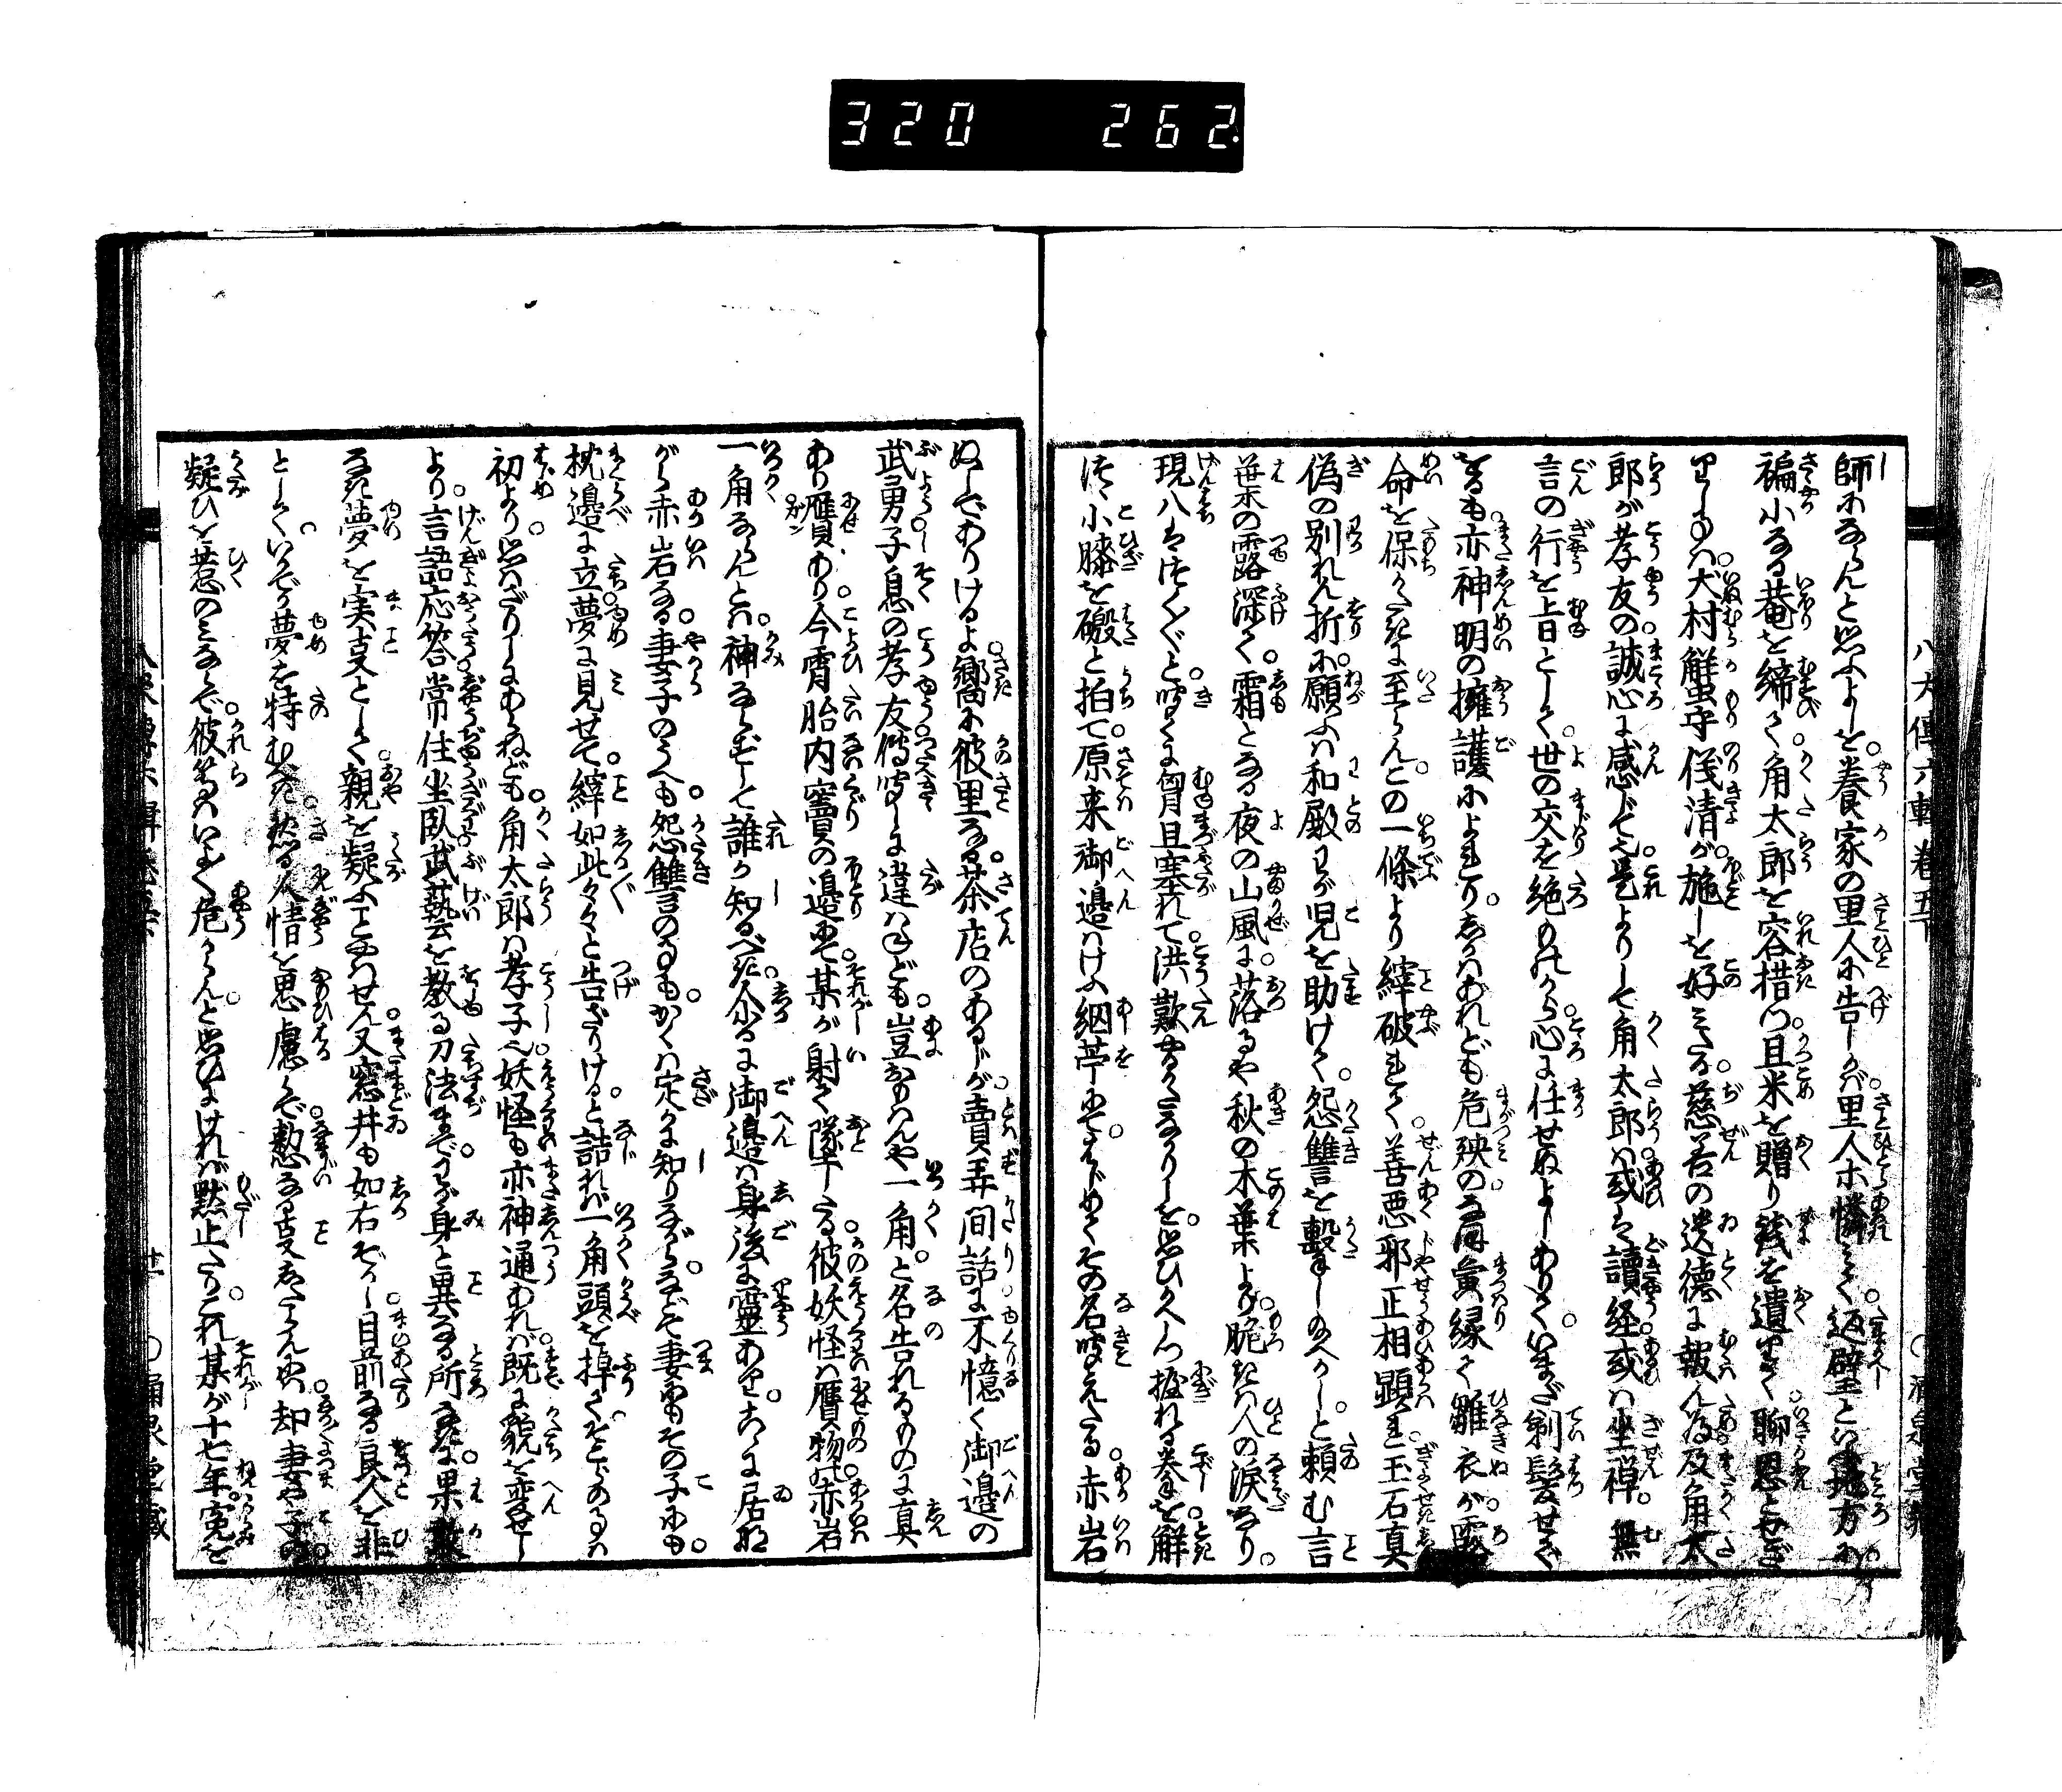 320 262
師にならんと思ふよしを養家の里人に告しかば里人ホ憐みて返璧といふ地方に
褊小なる菴を締て角太郎を容措つ且米を贈り銭を遺りて聊恩とせざ
りしハ犬村蟹守儀清が施しを好みたる慈善の遺徳に報ん為及角太
郎が孝友の誠心に感じて也是よりして角太郎ハ或は讀経或ハ坐禅無
言の行を旨として世の交を絶ものから心に任せぬよしありていまだ剃髪せざ
るも亦神明の擁護によれりしかハあれども危殃のなほ夤縁て雛衣が露
命を保かたきに至らんとの一條より縡破れて善悪邪正相顕れ玉石真
偽の別れん折に願ふハ和殿わが児を助けて怨讐を撃しめ給へかしと頼む言
葉の露深く霜となる夜の山風に落るや秋の木葉より脆きハ人の涙なり
現八はつく〲と聞くに胸且塞れて洪歎せるのみなりしを思ひかへしつ握れる拳を解
つゝ小膝を礑と拍て原来御邊ハけふ網苧にてはじめてその名聞えたる赤岩
ぬしでありけるよ郷に彼里なる茶店のあるじが賣弄間話に不憶く御邊の
武勇子息の孝友傳聞しに違ハねども豈おもハんや一角と名告れるものに真
あり贋あり今宵胎内竇の邊にて某が射て墜したる彼妖怪ハ贋物の赤岩
一角ならんとハ神ならずして誰か知るべき介るに御邊ハ身後に霊ありこゝに居な
がら赤岩なる妻子のうへも怨讐のるもかくハ定かに知りながらなどて妻にもその子にも
枕邊に立夢に見せて縡如此々々と告ざりけると詰れバ一角頭を掉てそことあるハ
初より思ハざりしにあらねども角太郎ハ孝子也妖怪も亦神通あれバ既に貌を変せし
より言語応答常住坐臥武藝を教る刀法までわが身と異なる所なきに果敢
なき夢を実事として親を疑ふことハせん又窓井も如右ぞかし目前なる良人を非
としていかで夢を特むべき然る人情を思慮らで憖なる事したらんにハ却妻や子の
疑ひを惹のミならで彼等ハいよゝ危からんと思ひにければ黙止たりこれ某が十七年寃を